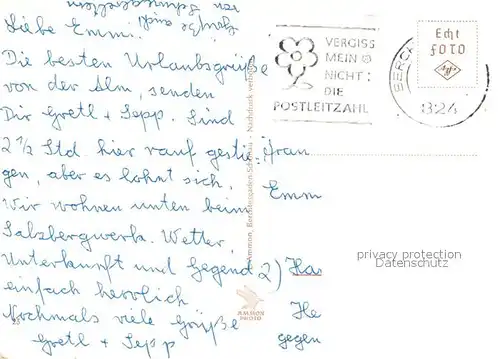 Liebe Emm.
Die besten Urlaubsgrüße
von der Alm, senden
Dir Gretl + Sepp. Sind
2 1/2 Std. hier rauf gestie-
gen, aber es lohnt sich.
Wir wohnen unten beim
Salzbergwerk. Wetter,
Unterkunft und Gegend
einfach herrlich
Nochmals viele Grüße
Gretl + Sepp
VERGISS
MEIN
NICHT:
DIE
POSTLEITZAHL
BERCH
824
Echt
FOTO
Agfa
Fran
Emm
2) Has
He
gegen
AMMON
PHOTO
privacy protection
Datenschutz